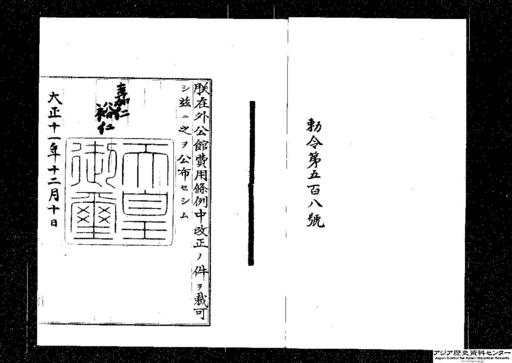 勅令第五百八號
朕在外公館費用條例中改正ノ件ヲ裁可
シ茲ニ之ヲ公布セシム
嘉仁
裕仁
天皇御璽
大正十一年十二月十日
アジア歴史資料センター
Japan Center for Asian Historical Records